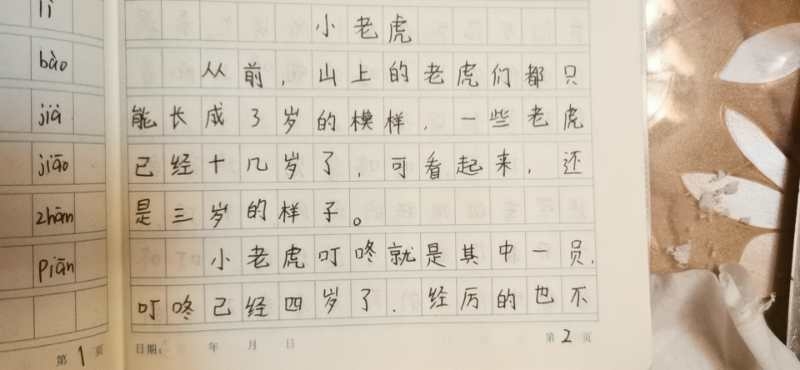 lì
bào
jià
jiāo
zhàn
piān
第1页
小老虎
从前，山上的老虎们都只
能长成3岁的模样，一些老虎
已经十几岁了，可看起来，还
是三岁的样子。
小老虎叮咚就是其中一员，
叮咚已经四岁了，经历的也不
日期： 年 月 日
第2页